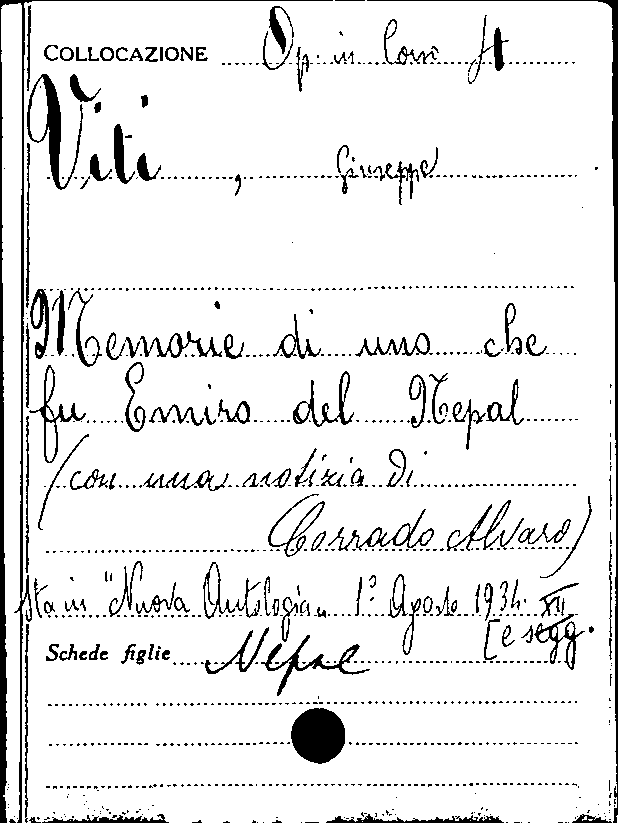 COLLOCAZIONE Op. in
Viti, Giuseppe
Memorie di uno che
fu Emiro del Nepal
(con una notizia di
Corrado Alvaro)
Sta in "Nuova Antologia„ 1° Agosto 1934. XII
[e segg.
Schede figlie Nepal